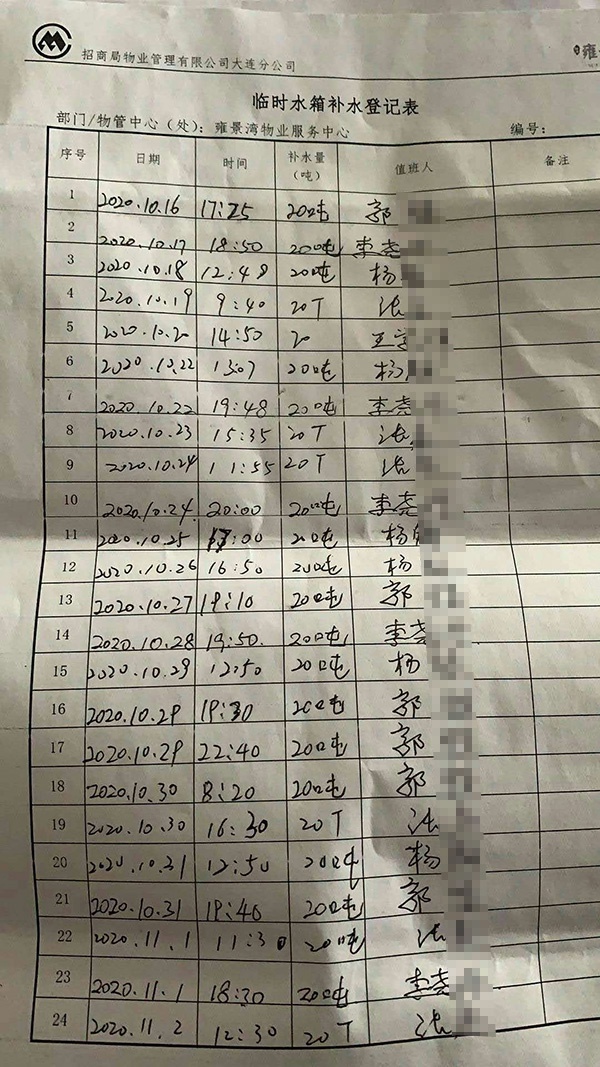 招商局物业管理有限公司大连分公司
雍
临时水箱补水登记表
部门/物管中心(处):雍景湾物业服务中心 编号:
序号 日期 时间 补水量(吨) 值班人 备注
1 2020.10.16 17:25 20吨 郭
2 2020.10.17 18:50 20吨 李尧
3 2020.10.18 12:48 20吨 杨
4 2020.10.19 9:40 20T 张
5 2020.10.20 14:50 20 王宇
6 2020.10.22 13:07 20吨 杨
7 2020.10.22 19:48 20吨 李尧
8 2020.10.23 15:35 20T 张
9 2020.10.24 11:55 20T 张
10 2020.10.24 20:00 20吨 李尧
11 2020.10.25 :00 20吨 杨
12 2020.10.26 16:50 20吨 杨
13 2020.10.27 19:10 20吨 郭
14 2020.10.28 19:50 20吨 李尧
15 2020.10.29 12:50 20吨 杨
16 2020.10.29 19:30 20吨 郭
17 2020.10.29 22:40 20吨 郭
18 2020.10.30 8:20 20吨 郭
19 2020.10.30 16:30 20T 张
20 2020.10.31 12:50 20吨 杨
21 2020.10.31 19:40 20吨 郭
22 2020.11.1 11:30 20吨 张
23 2020.11.1 18:30 20吨 李尧
24 2020.11.2 12:30 20T 张